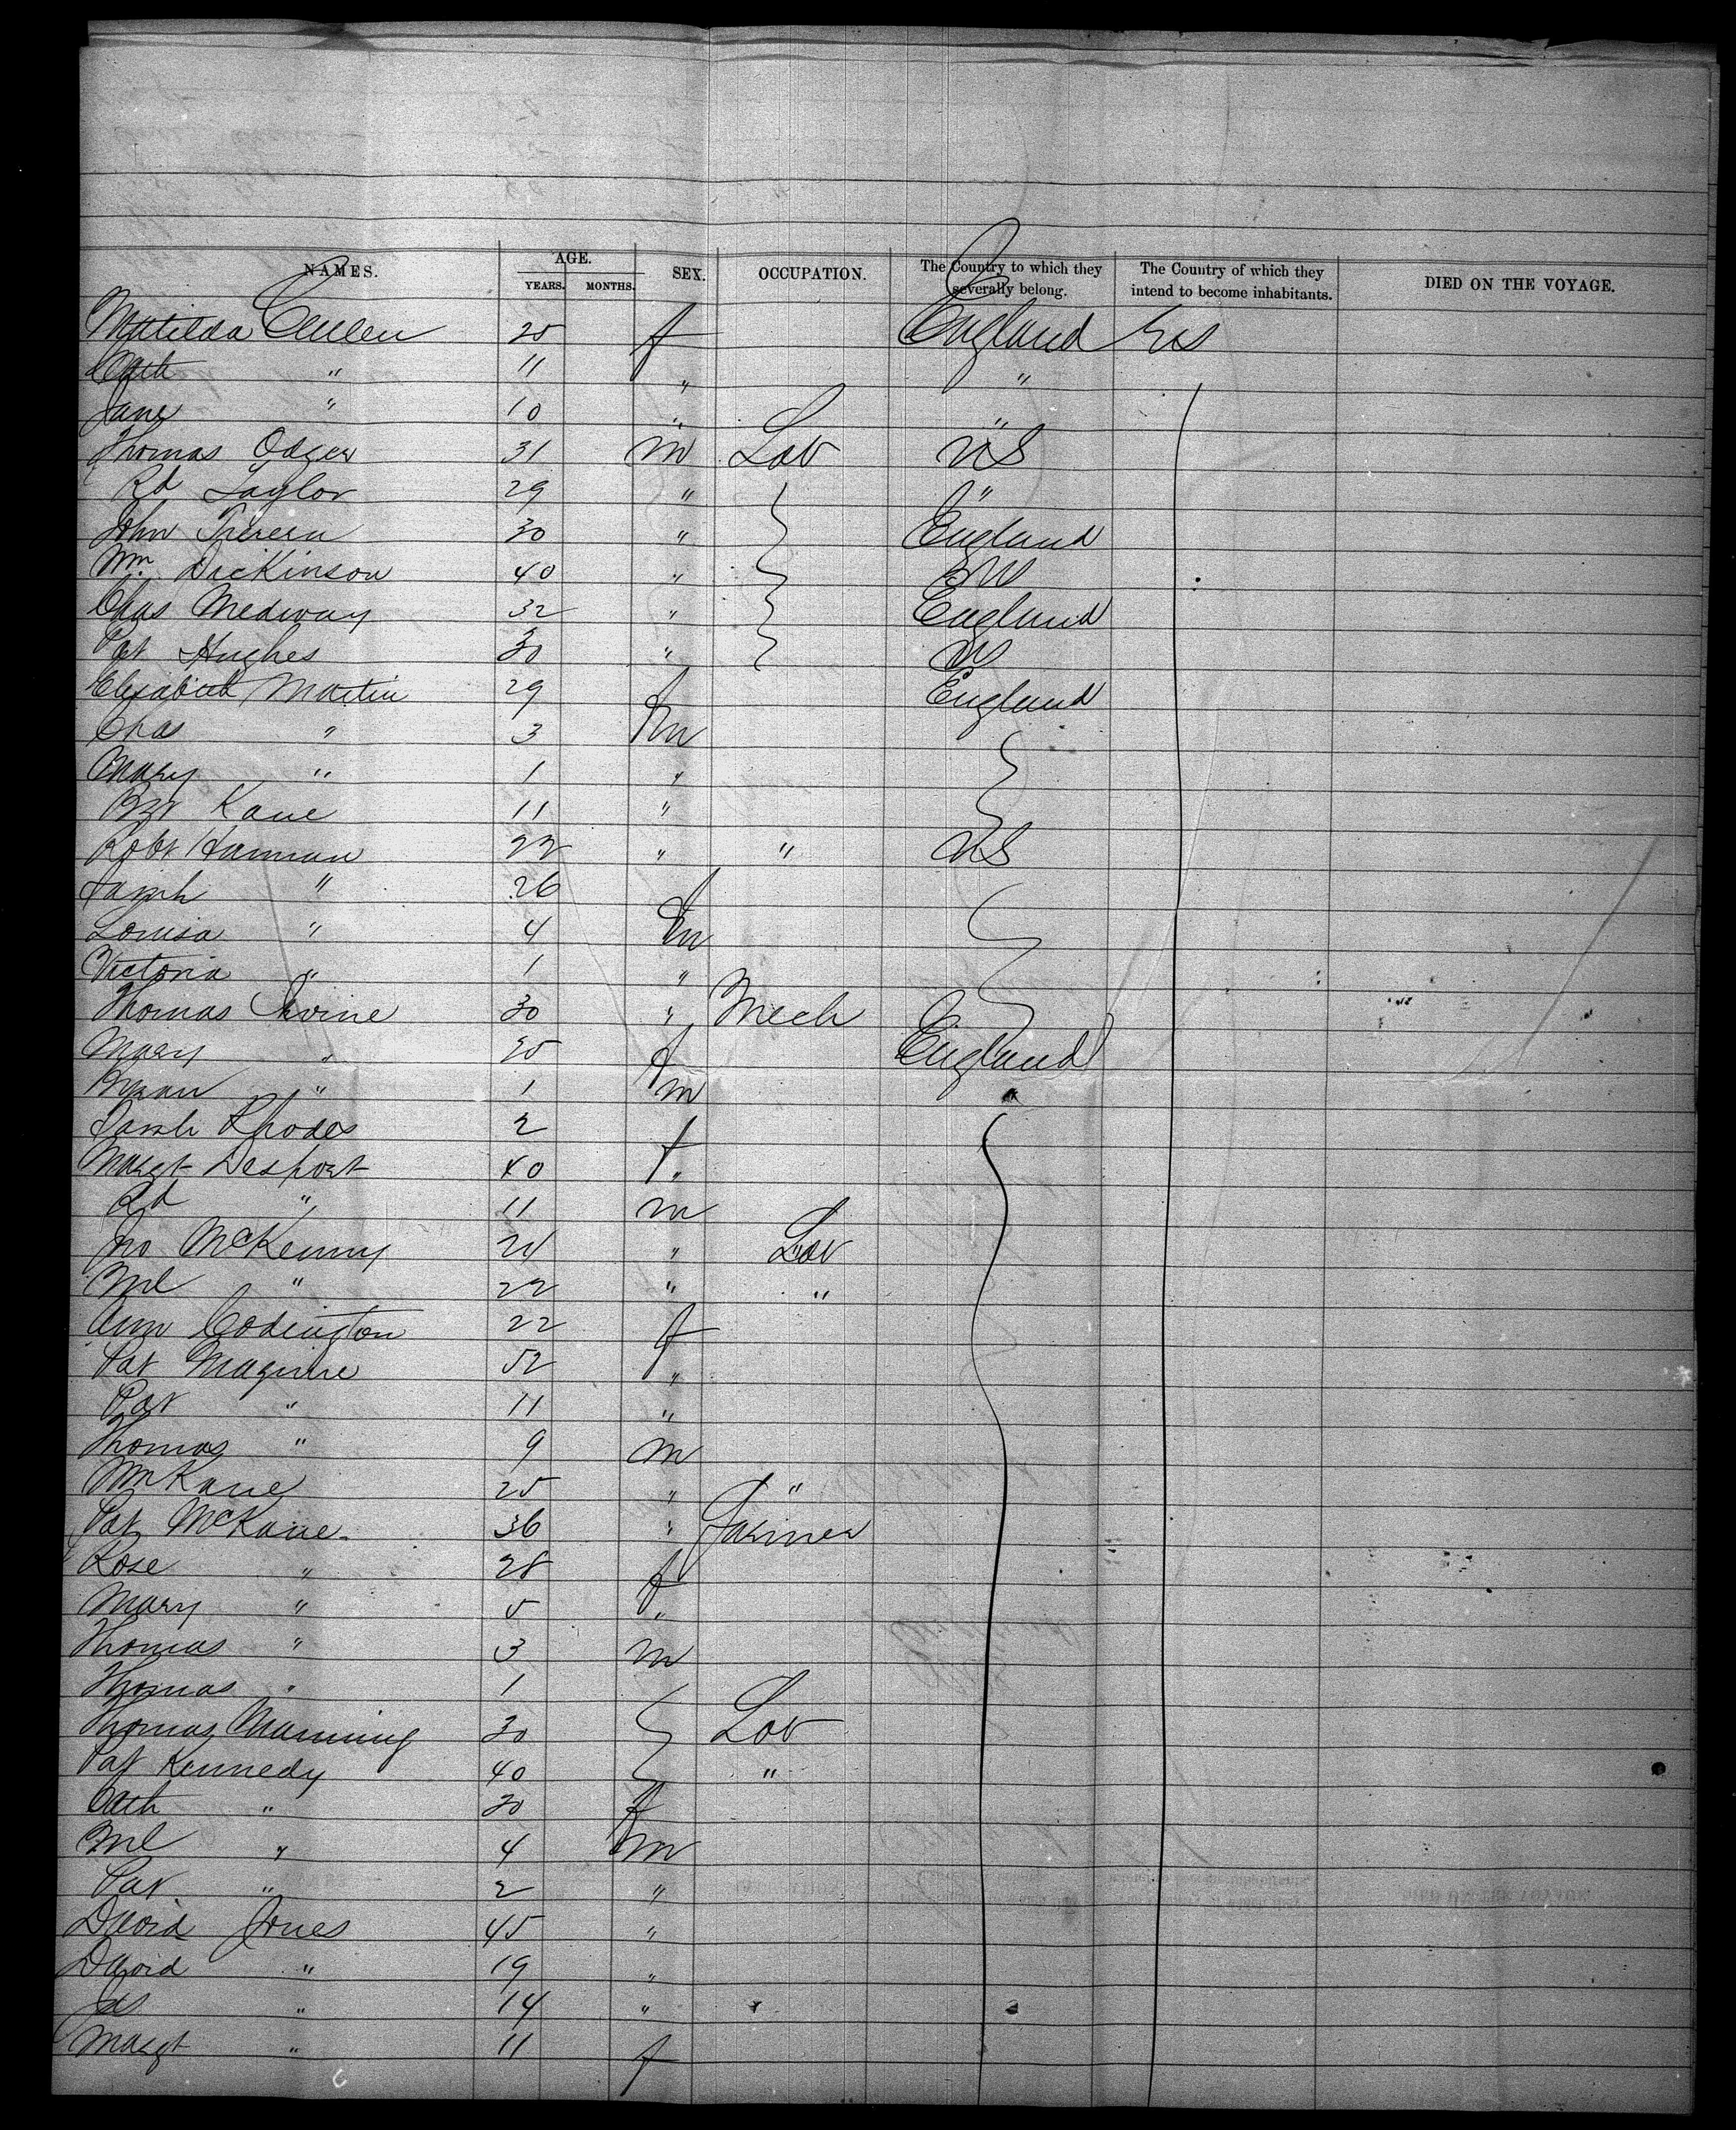 NAMES. AGE. YEARS. MONTHS. SEX. OCCUPATION. The Country to which they severally belong. The Country of which they intend to become inhabitants. DIED ON THE VOYAGE.
Matilda Cullen 25 f England US
Cath " 11 " "
Jane " 10 " "
Thomas Odger 31 m Lab US
Rd Taylor 29 " "
John 30 " England
Wm Dickinson 40 " US
Chas Medway 32 " England
Pat Hughes 30 " US
Elizabeth Martin 29 f England
Chas " 3 m
Mary " 1 "
Kane 11 "
Robt Hamman 22 " " US
Sarah " 26 f
Louisa " 4 m
Victoria " 1 "
Thomas Irvine 30 " Mech
Mary " 25 f England
" 1 m
Sarah Rhodes 2 f
Margt Desport 40 "
Rd " 11 m
Jno McKenny 24 " Lab
Ml " 22 " "
Ann Codington 22 f
Pat Maguire 52 "
Pat " 11 "
Thomas " 9 m
Wm Kane 25 " "
Pat McKane 36 " Farmer
Rose " 28 f
Mary " 5 "
Thomas " 3 m
Thomas " 1
Thomas Manning 30 Lab
Pat Kennedy 40 "
Cath " 30 f
Ml " 4 m
Pat " 2 "
David Jones 45 "
David " 19 "
Jas " 14 "
Margt " 11 f